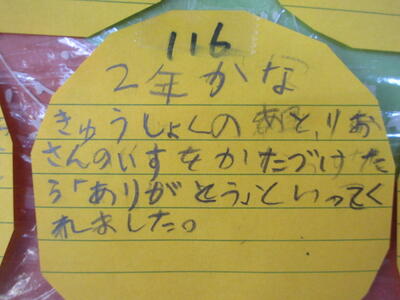 116
2年かな
きゅうしょくのあと、りお
さんのいすをかたづけた
ら「ありがとう」といってく
れました。